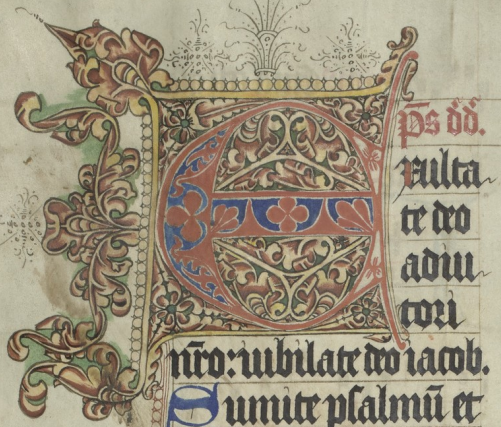 p̄s d̄d̄.
Exulta
te deo
adiu
tori
nr̄o: iubilate deo iacob.
Sumite psalmū et